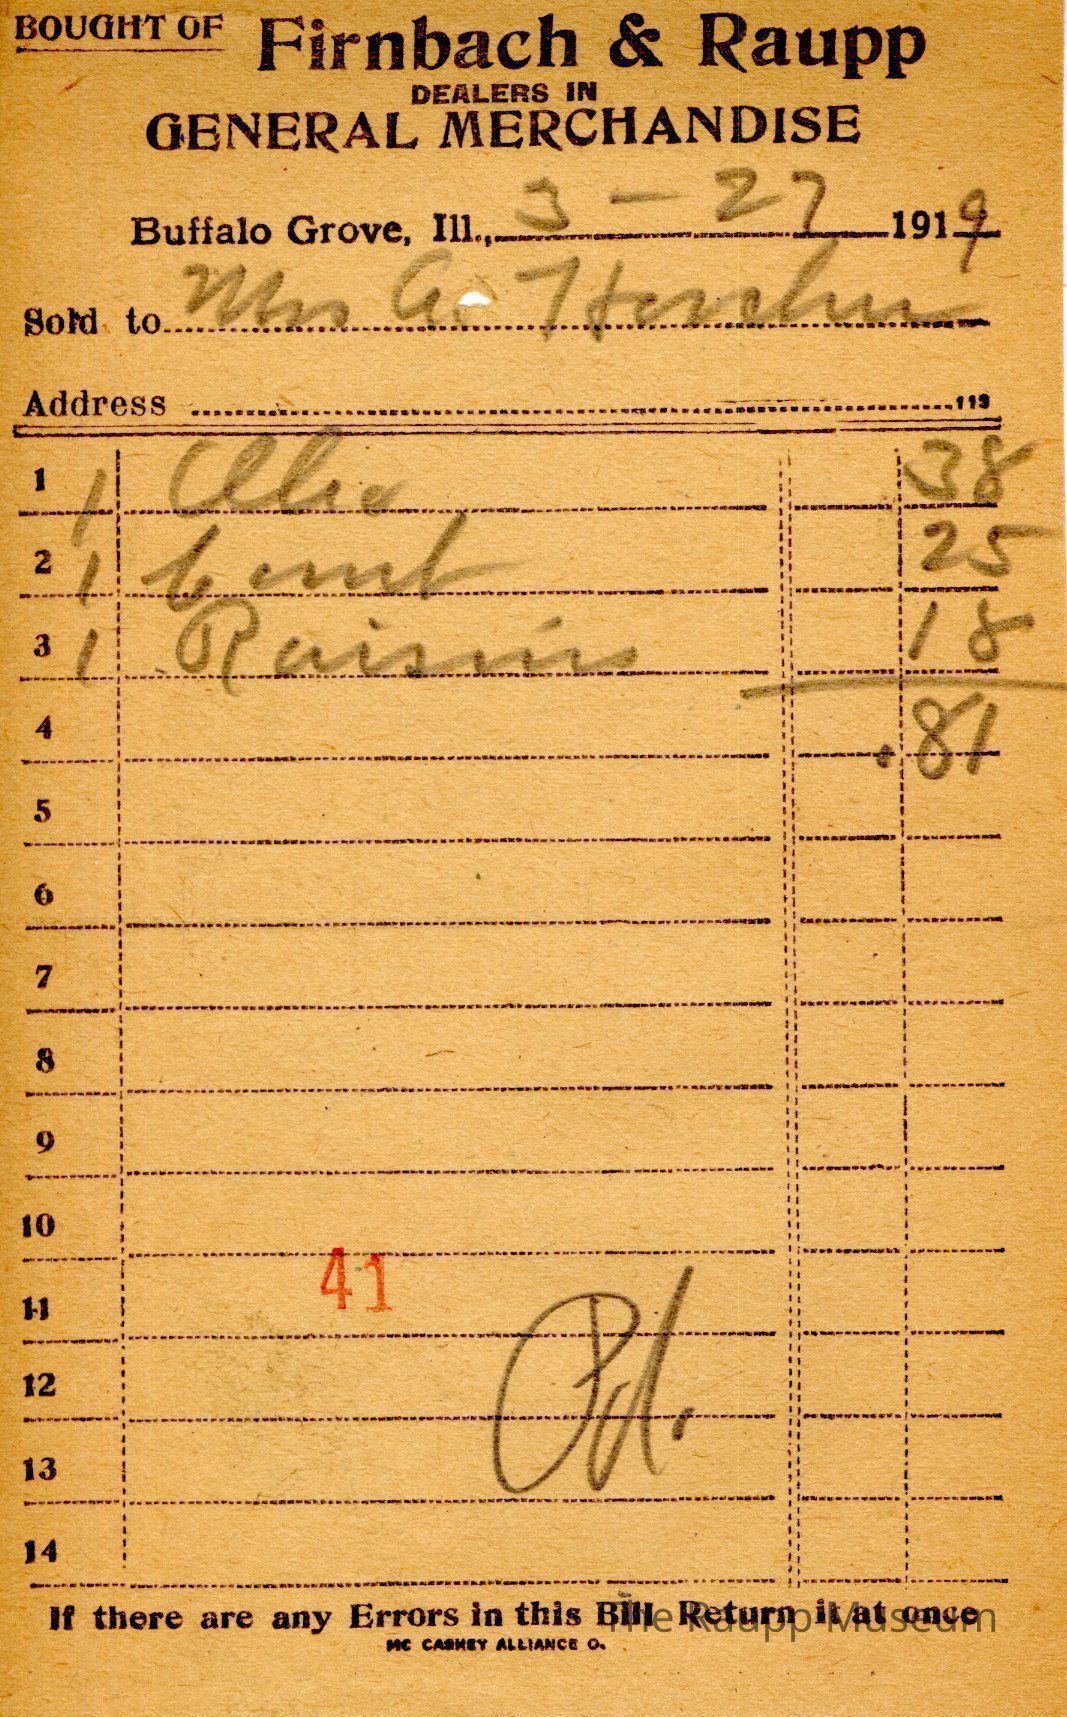 BOUGHT OF Firnbach & Raupp
DEALERS IN
GENERAL MERCHANDISE
Buffalo Grove, Ill., 3 - 27 1919
Sold to Mrs
Address 113
1 1 Oleo 38
2 1 25
3 1 Raisins 18
4 .81
5
6
7
8
9
10
41
11
12 Pd.
13
14
If there are any Errors in this Bill Return it at once
The Raupp Museum
MC CASKEY ALLIANCE O.